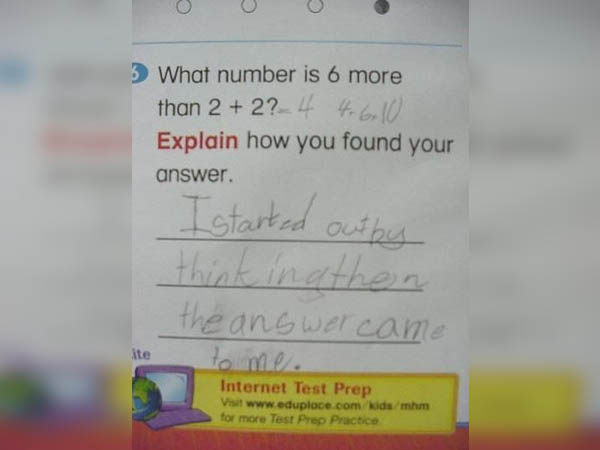 6 What number is 6 more
than 2 + 2? = 4 4+6=10
Explain how you found your
answer.
I started out by
thinking then
the answer came
to me.
ite
Internet Test Prep
Visit www.eduplace.com/kids/mhm
for more Test Prep Practice.